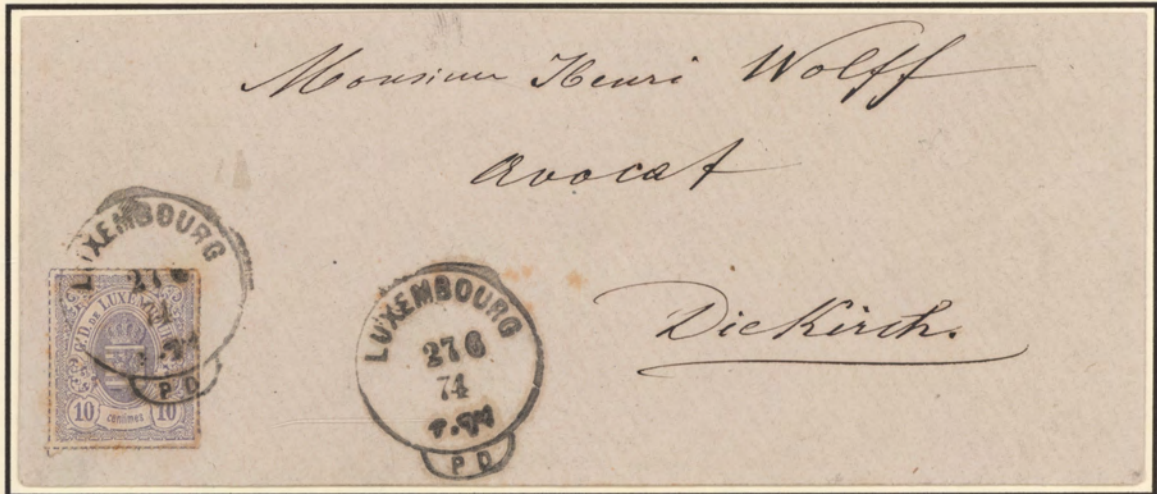 Monsieur Henri Wolff
avocat
Diekirch.
LUXEMBOURG
27 6
P D
G. D. DE LUXEMBOURG
10 centimes 10
LUXEMBOURG
27 6
74
P D